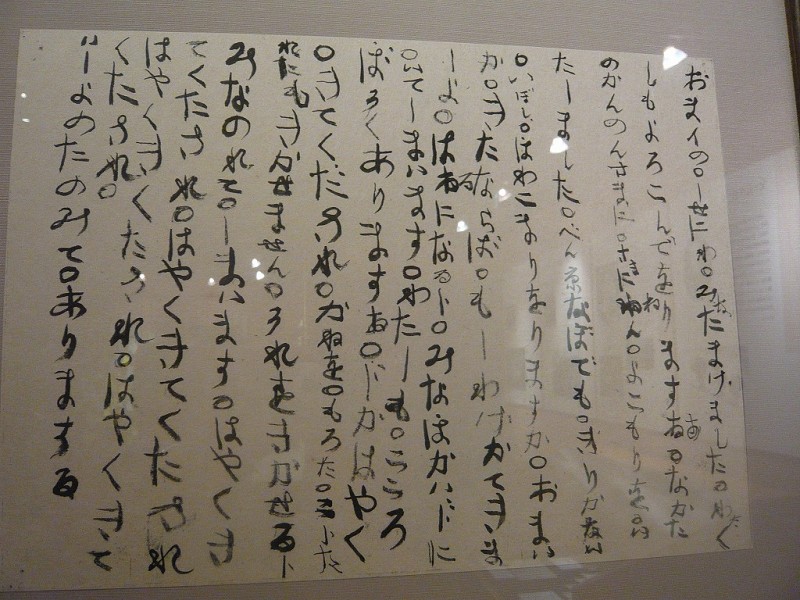 おまイの〇しせにわ〇みなたまげました〇わたく
しもよろこんでをりまする〇なかた
のかんのんさまに〇さまにねん〇よこもりを〇い
たしました〇べん京なぼでも〇きりかない
〇いぼし〇ほわこまりをりますか〇おまい
か〇きたならば〇もしわけかてきま
しよ〇はるになるト〇みなほかいドに
〇いてしまいます〇わたしも〇こころ
ぼそくありまする〇ドかはやく
〇きてくだされ〇かねを〇もろた〇こトた
れにもきかせません〇それをきかせるト
みなのれて〇しまいます〇はやくき
てくたされ〇はやくきてくたされ
はやくきてくたされ〇はやくきて
くたされ〇
いしよのたのみて〇ありまする